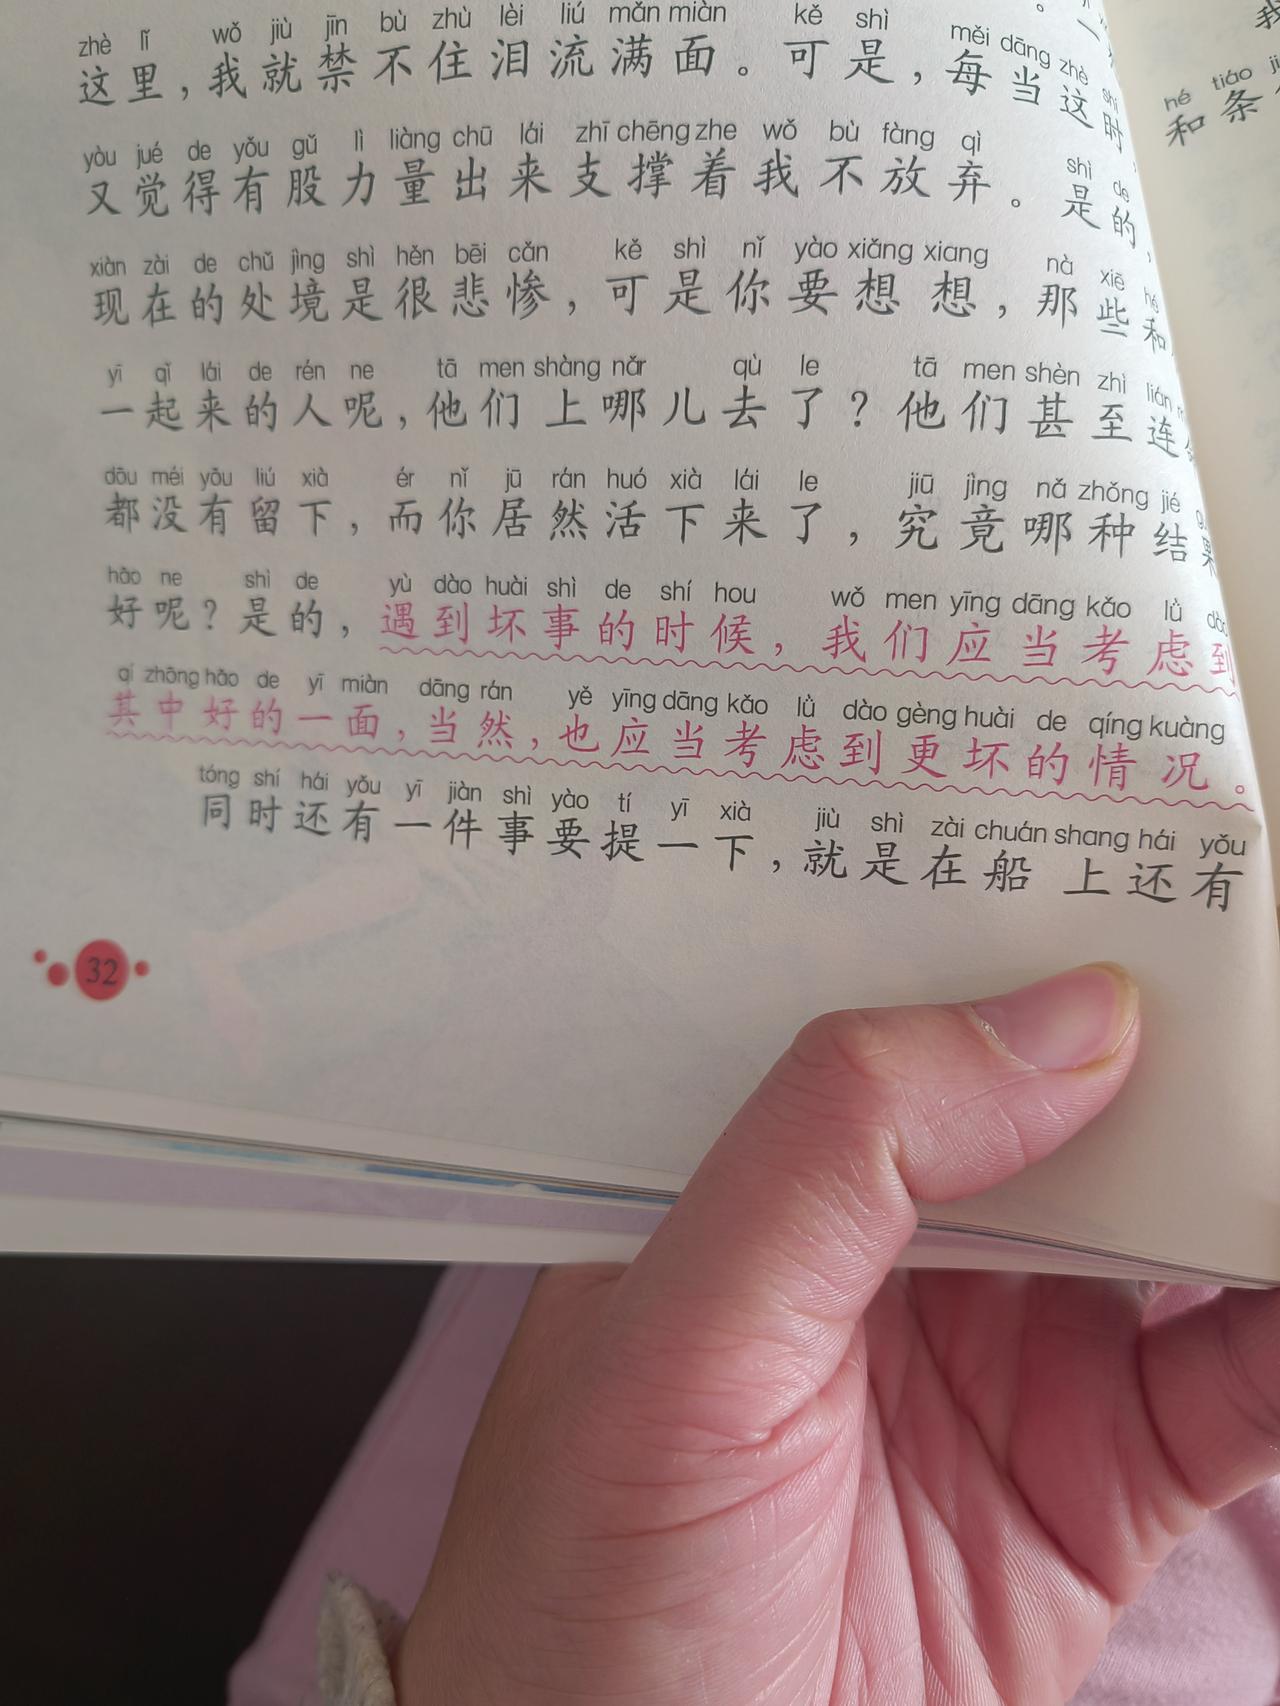 zhè lǐ wǒ jiù jīn bù zhù lèi liú mǎn miàn kě shì měi dāng zhè shí
这里，我就禁不住泪流满面。可是，每当这时，
yòu jué de yǒu gǔ lì liàng chū lái zhī chēng zhe wǒ bù fàng qì shì de
又觉得有股力量出来支撑着我不放弃。是的，
xiàn zài de chǔ jìng shì hěn bēi cǎn kě shì nǐ yào xiǎng xiang nà xiē hé
现在的处境是很悲惨，可是你要想想，那些和
yī qǐ lái de rén ne tā men shàng nǎr qù le tā men shèn zhì lián
一起来的人呢，他们上哪儿去了？他们甚至连
dōu méi yǒu liú xià ér nǐ jū rán huó xià lái le jiū jìng nǎ zhǒng jié
都没有留下，而你居然活下来了，究竟哪种结果
hǎo ne shì de yù dào huài shì de shí hou wǒ men yīng dāng kǎo lǜ dào
好呢？是的，遇到坏事的时候，我们应当考虑到
qí zhōng hǎo de yī miàn dāng rán yě yīng dāng kǎo lǜ dào gèng huài de qíng kuàng
其中好的一面，当然，也应当考虑到更坏的情况。
tóng shí hái yǒu yī jiàn shì yào tí yī xià jiù shì zài chuán shang hái yǒu
同时还有一件事要提一下，就是在船上还有
32
hé tiáo
和条